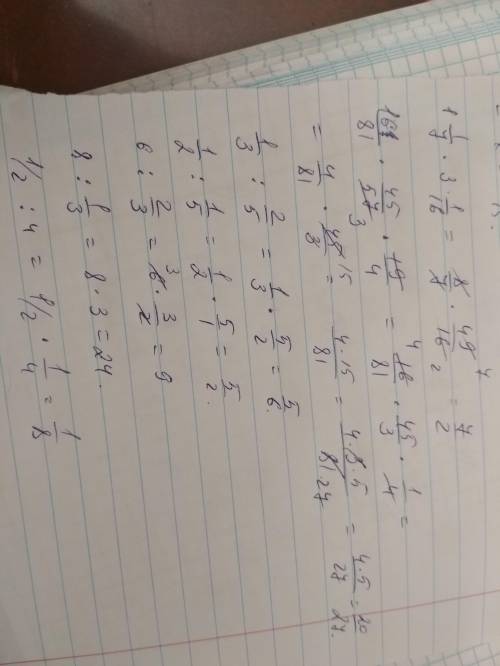 1 1/7 · 3 1/16 = 8/7 · 49/16 = 7/2
16/81 · 45/57 · 19/4 = 16/81 · 45/3 · 1/4 =
= 4/81 · 45/3 = 4·15/81 = 4·3·5/81 = 4·5/27 = 20/27.
1/3 : 2/5 = 1/3 · 5/2 = 5/6.
1/2 : 1/5 = 1/2 · 5/1 = 5/2.
6 : 2/3 = 6·3/2 = 9
8 : 1/3 = 8 · 3 = 24.
1/2 : 4 = 1/2 · 1/4 = 1/8